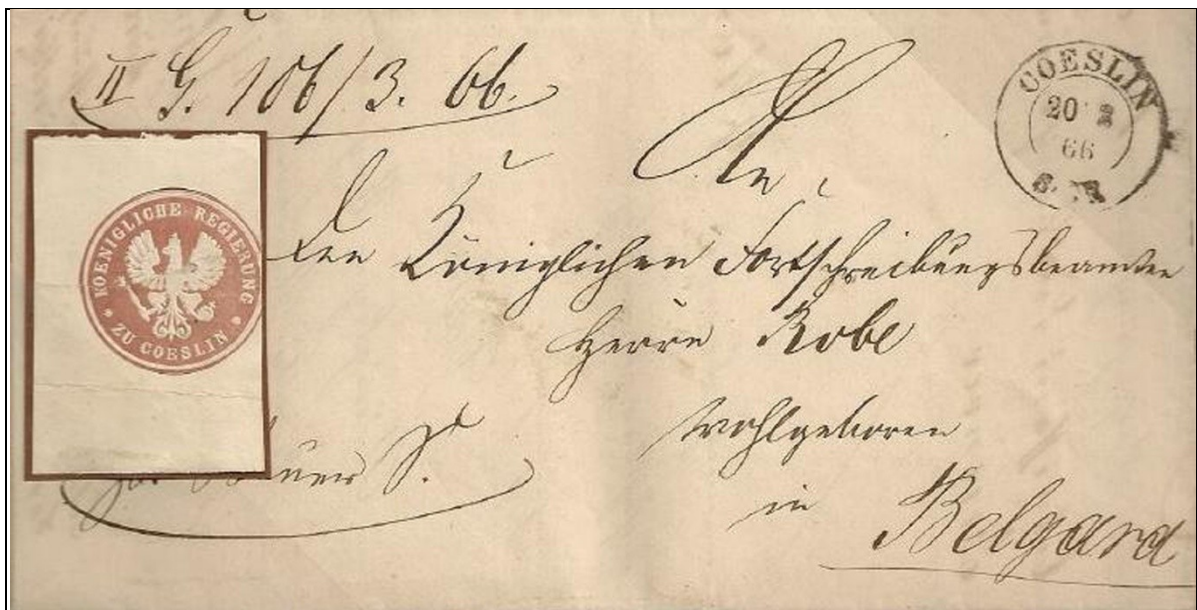 II G. 106/3. 66.
COESLIN
20 3
66
KOENIGLICHE REGIERUNG
ZU COESLIN
An
den Königlichen Fortschreibungsbeamten
Herrn Robe
Wohlgeboren
in Belgard